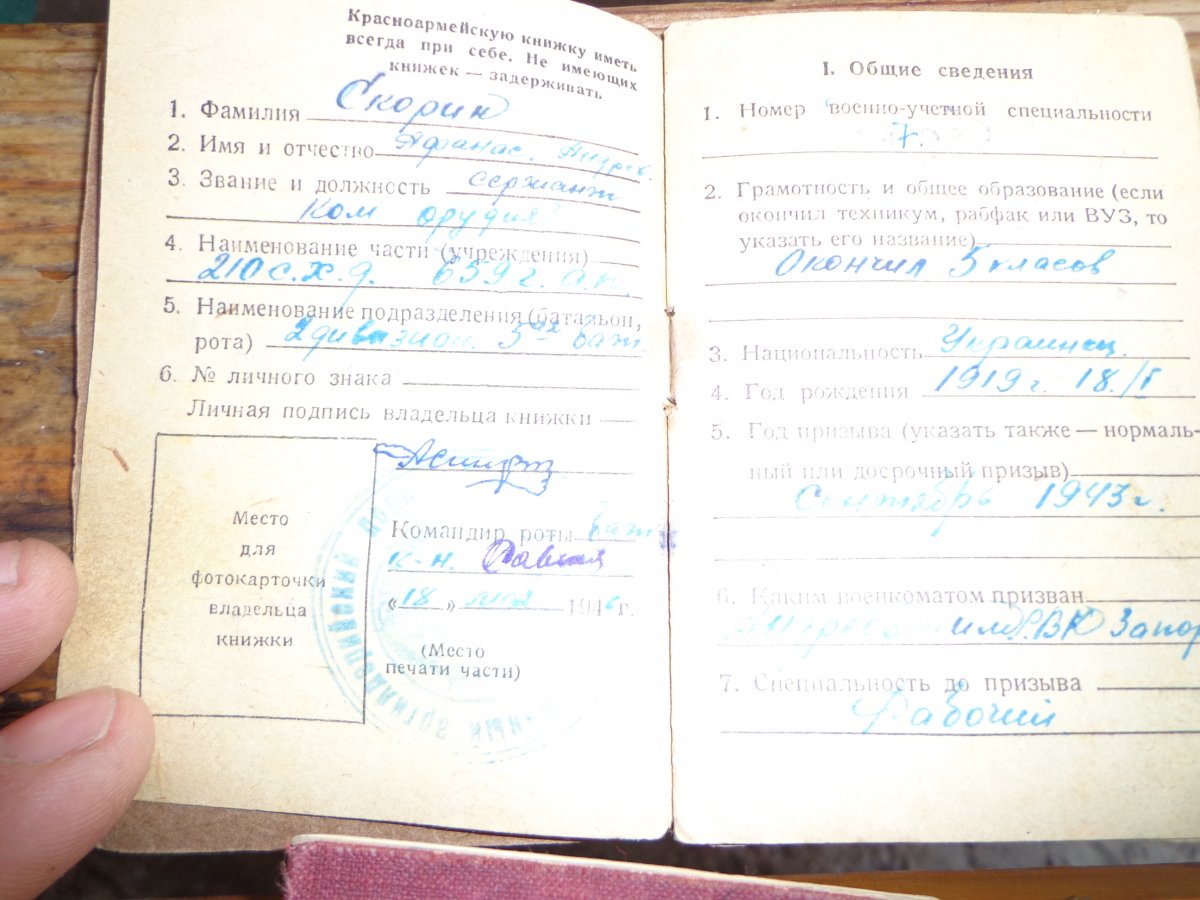 Красноармейскую книжку иметь
всегда при себе. Не имеющих
книжек — задерживать
1. Фамилия Скорин
2. Имя и отчество Афанас. Андрев.
3. Звание и должность сержант
Ком орудия
4. Наименование части (учреждения)
210 с.х.д. 659 г. а.п.
5. Наименование подразделения (батальон,
рота) 2 дивизион. 5 бат
6. № личного знака
Личная подпись владельца книжки
Место
для
фотокарточки
владельца
книжки
Командир роты бат
к-н.
«18» мая 1946 г.
(Место
печати части)
I. Общие сведения
1. Номер военно-учетной специальности
7.
2. Грамотность и общее образование (если
окончил техникум, рабфак или ВУЗ, то
указать его название)
Окончил 5 класов
3. Национальность Украинец.
4. Год рождения 1919 г. 18/I
5. Год призыва (указать также — нормаль-
ный или досрочный призыв)
Сентябрь 1943 г.
6. Каким военкоматом призван
РВК Запор
7. Специальность до призыва
Рабочий